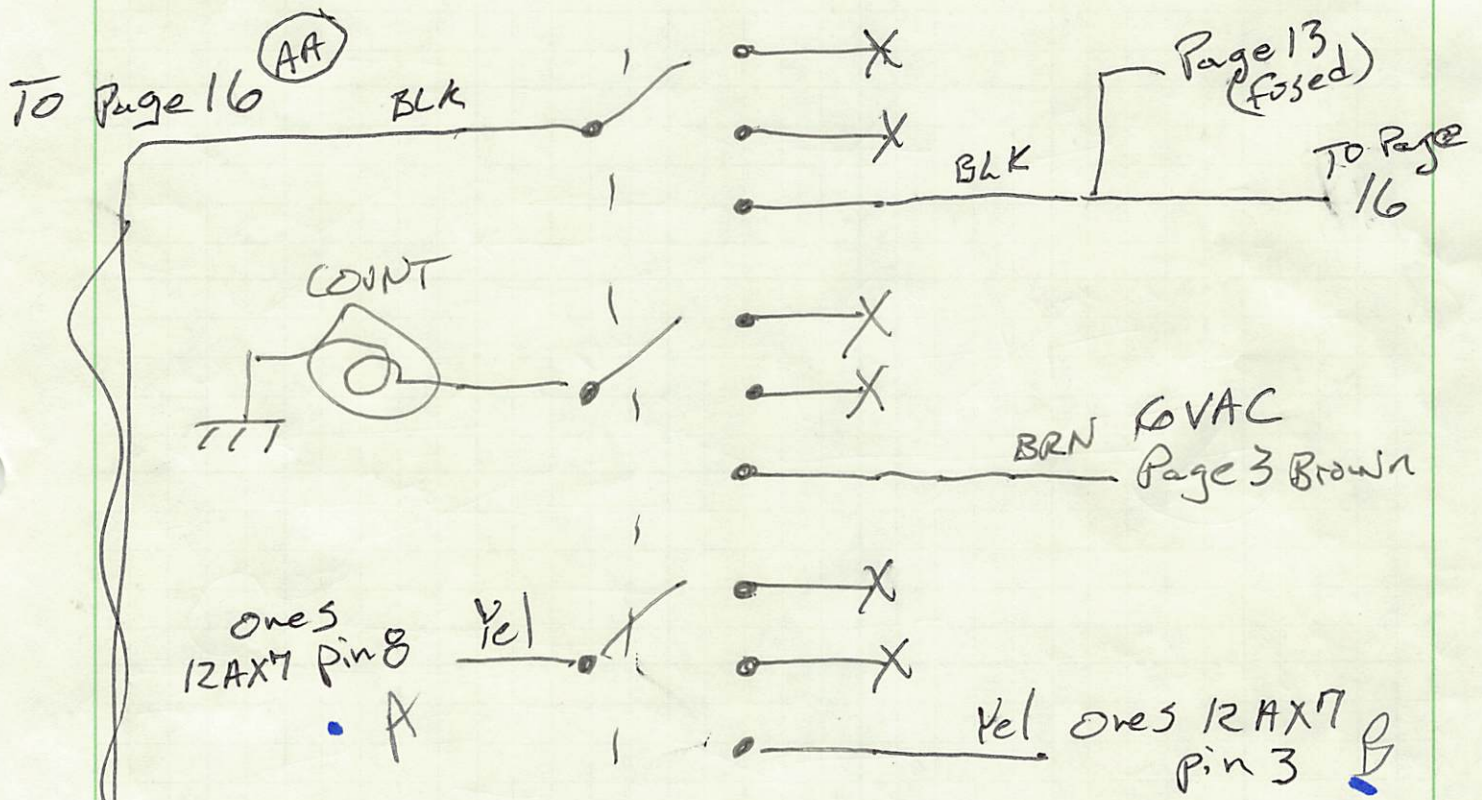 AA
To Page 16
BLK
Page 13
(fused)
BLK
To Page
16
COUNT
BRN
6VAC
Page 3 Brown
ones
12AX7 pin 8
Yel
A
Yel
ones 12AX7
pin 3
B